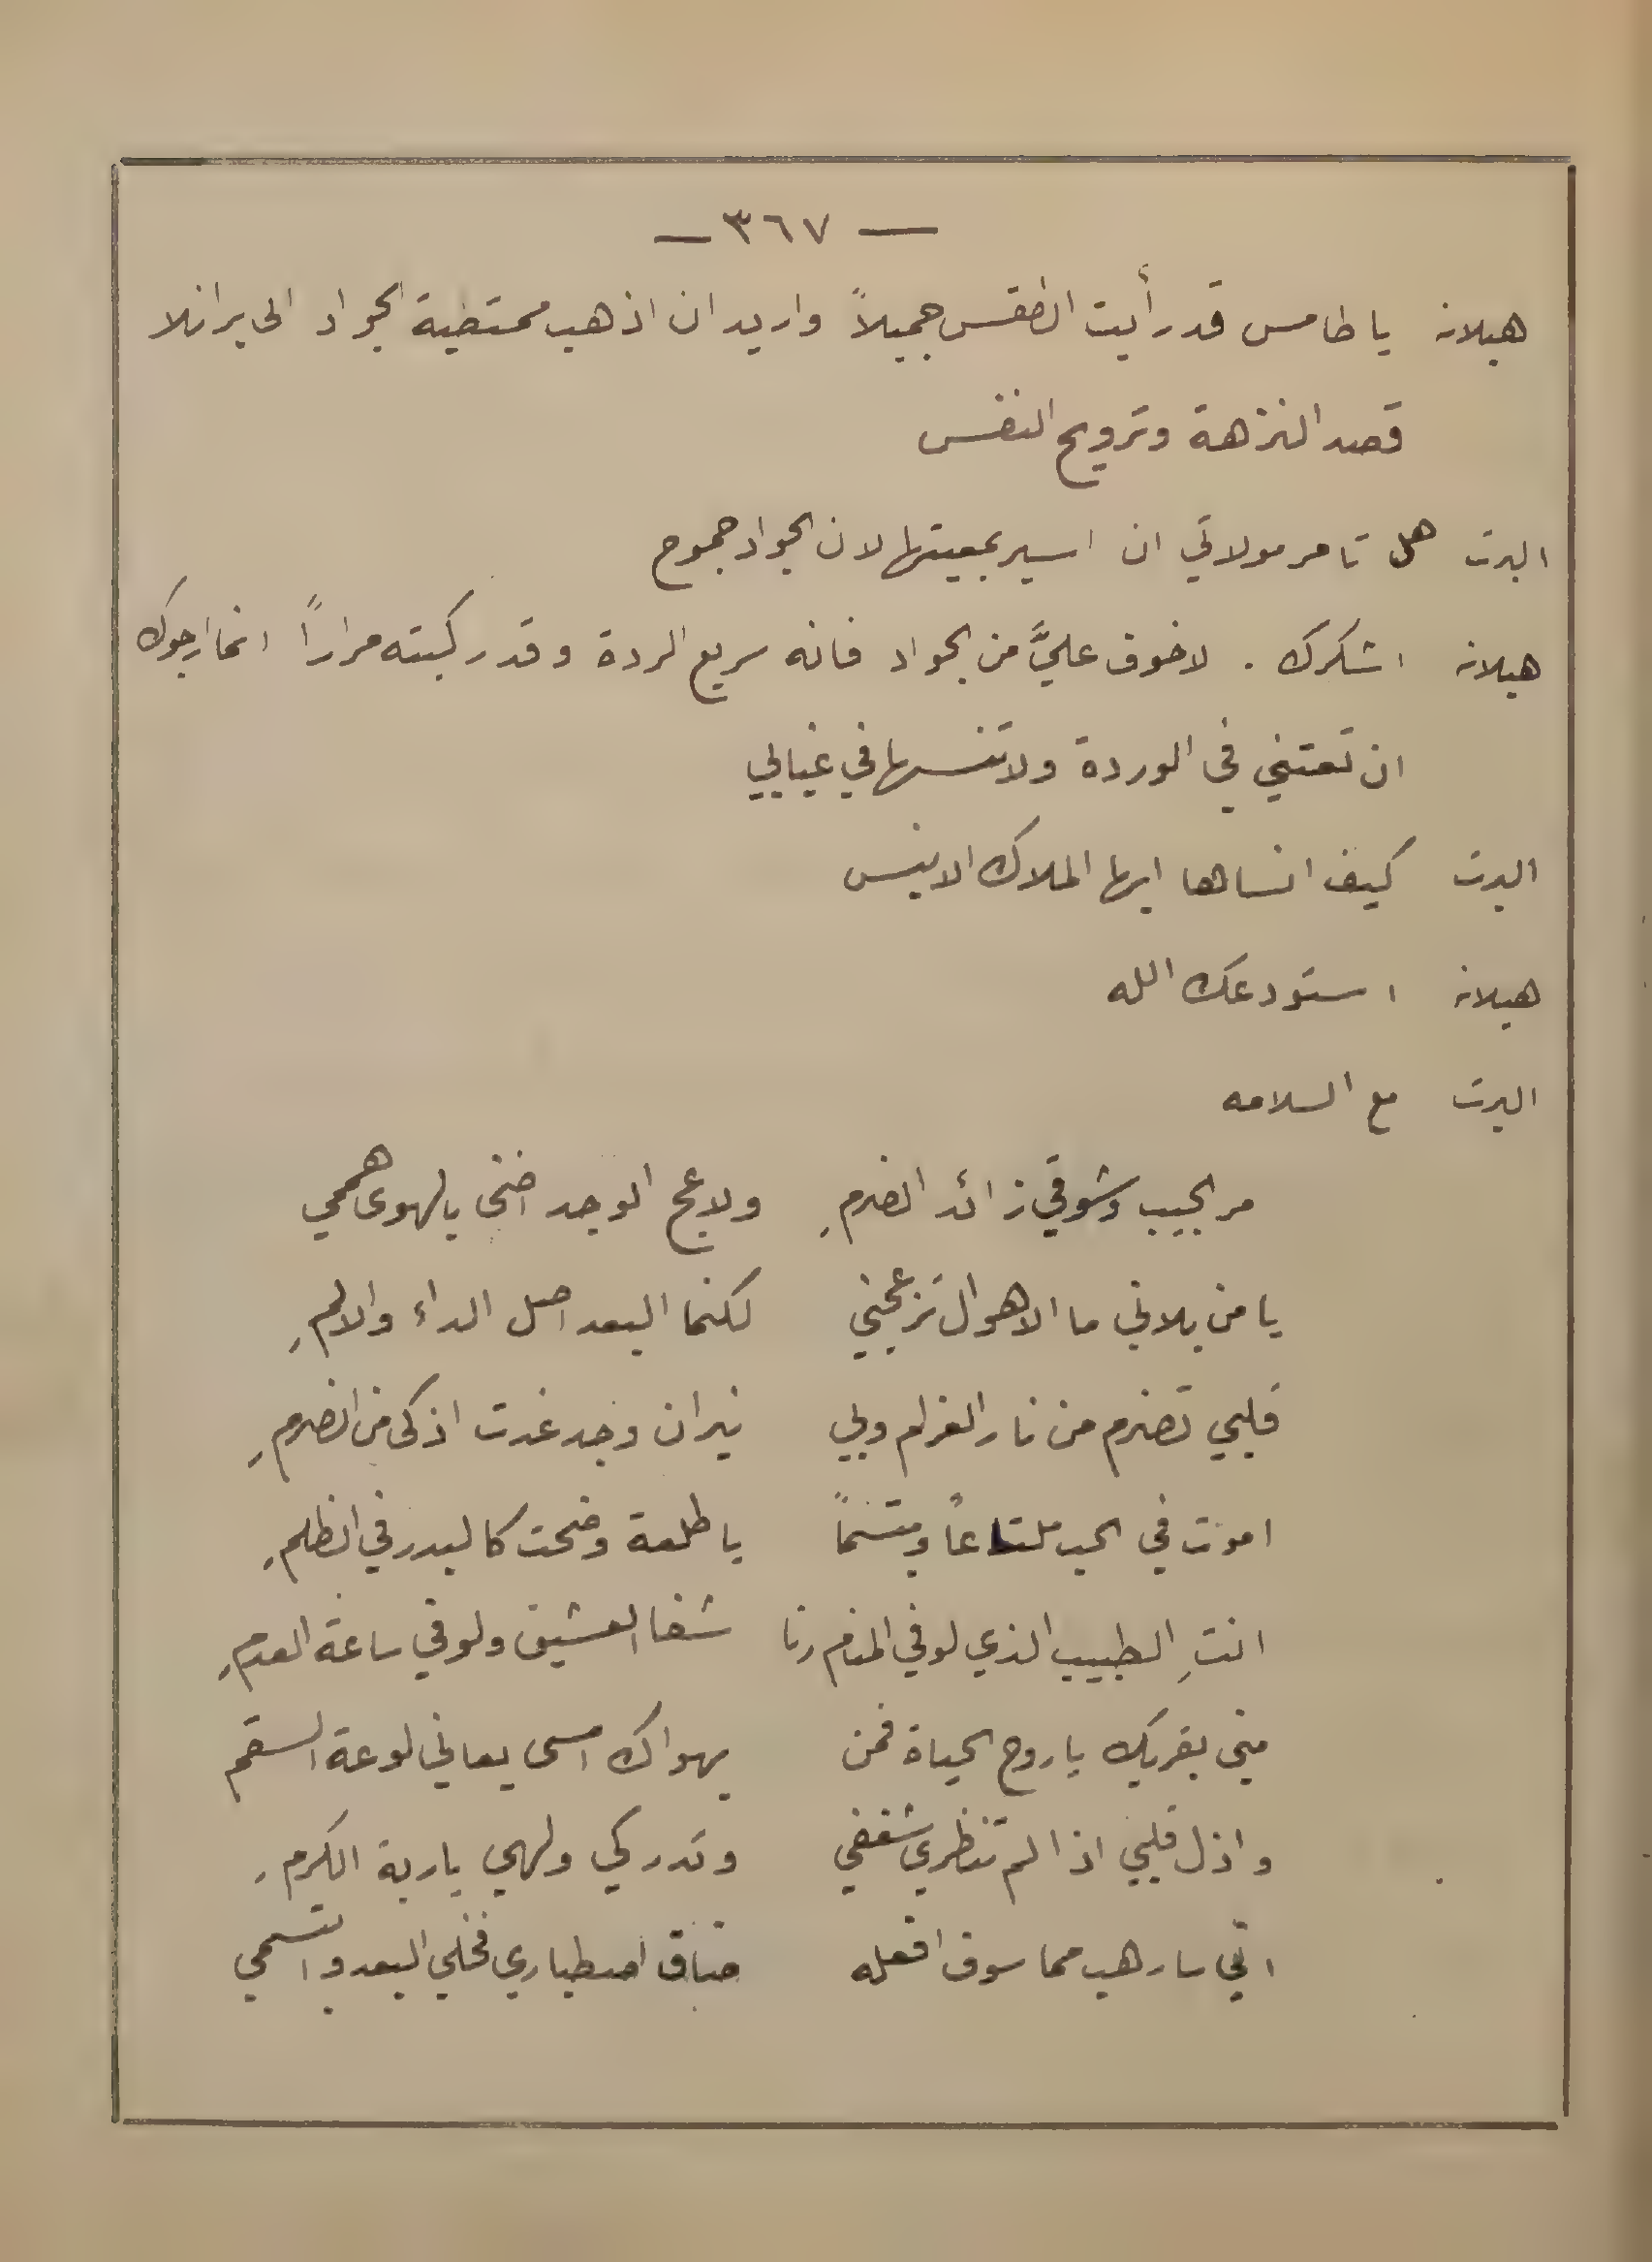 — ٣٦٧ —
هيلانه يا طامس قد رأيت الطقس جميلاً واريد ان اذهب ممتطية الجواد الى برانلا
قصد النزهة وترويح النفس
البرت هل تامر مولاتي ان اسير بمعيتها لان الجواد جموح
هيلانه اشكرك . لا خوف عليَّ من الجواد فانه سريع الردة وقد ركبته مراراً انما ارجوك
ان تعتني في الوردة ولا تنسها في غيابي
البرت كيف انساها ايها الملاك الانيس
هيلانه استودعك الله
البرت مع السلامه
مر الحبيب وشوقي زائد الضرمِ ولاعج الوجد اضنى بالهوى هممي
يا من بلاني ما الاهوال تزعجني لكنما البعد اصل الداء والالمِ
قلبي تضرم من نار الغرام وبي نيران وجد غدت اذكى من الضرمِ
اموت في الحب ملتاعاً ومبتسماً يا طلعة وضحت كالبدر في الظلمِ
انتِ الطبيب الذي لو في المنام رنا شفا العشيق ولو في ساعة العدمِ
مني بقربك يا روح الحياة فمن يهواك امسى يعاني لوعة السقم
واذل قلبي اذا لم تنظري شغفي وتدركي ولهي يا ربة الكرمِ
اني سارهب مما سوف افعله ضاق اصطباري فخلي البعد وابتسمي